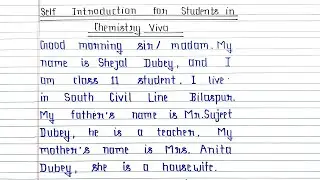 Self Introduction for Students in
Chemistry Viva
Good morning sir/ madam. My
name is Shejal Dubey, and I
am class 11 student. I live
in South Civil Line Bilaspur.
My father's name is Mr. Sujeet
Dubey, he is a teacher. My
mother's name is Mrs. Anita
Dubey, she is a housewife.